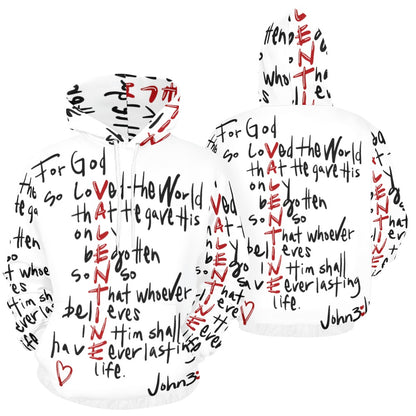 For God
so LoVed the World
thAt He gave His
onLy
bEgotten
soN so
That whoever
belIeves
iN Him shall
havE everlasting
life.
John3:
VALENTINE
For God
so LoVed the World
thAt He gave His
onLy
bEgotten
soN so
That whoever
belIeves
iN Him shall
havE everlasting
life.
John3:
VALENTINE